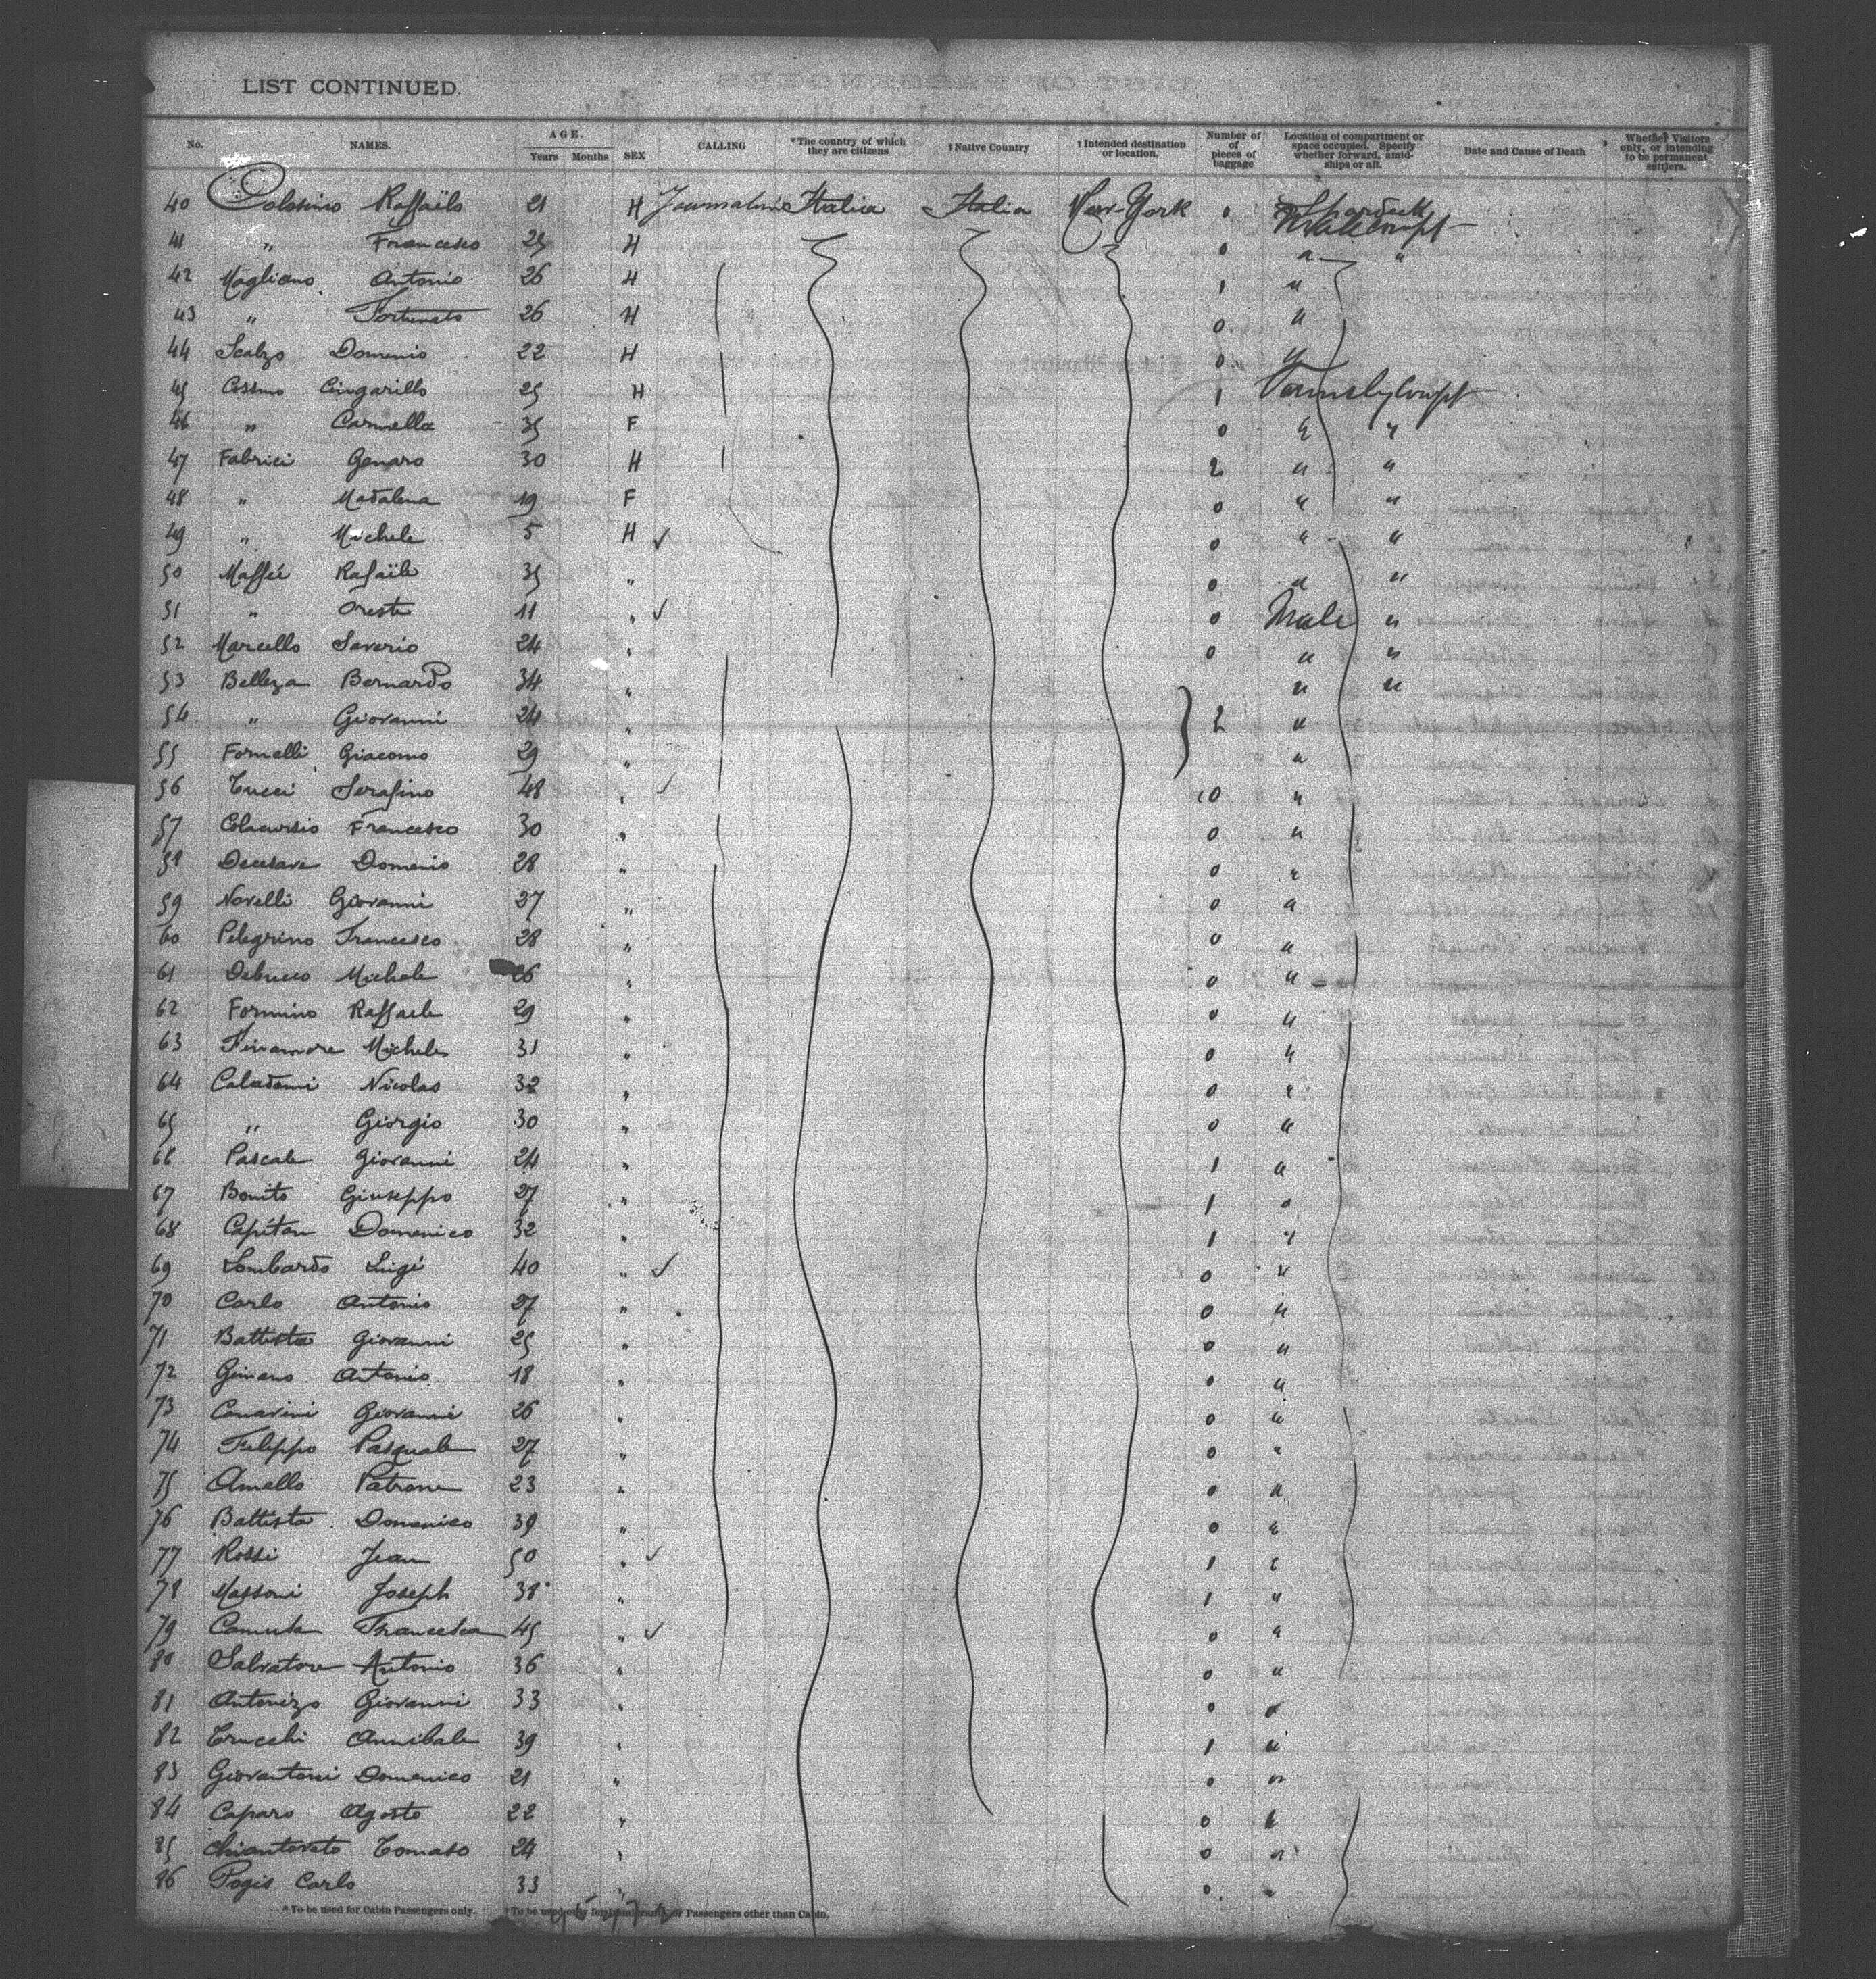 LIST CONTINUED.
No. NAMES. AGE. Years Months SEX CALLING *The country of which they are citizens † Native Country † Intended destination or location. Number of pieces of baggage Location of compartment or space occupied. Specify whether forward, amidships or aft. Date and Cause of Death Whether Visitors only, or intending to be permanent settlers.
40 Colosimo Raffaïlo 21 H Italia Italia New-York 0
41 " Francesco 25 H 0 " "
42 Magliano Antonio 26 H 1 "
43 " Fortunato 26 H 0 "
44 Scalzo Domenio 22 H 0 "
45 Cosimo Cingarillo 25 H 1
46 " Carmella 35 F 0 " "
47 Fabrici Genaro 30 H 2 " "
48 " Madalena 19 F 0 " "
49 " Michele 5 H ✓ 0 " "
50 Maffei Rafaïle 35 " 0 " "
51 " Oreste 11 " ✓ 0 Male "
52 Marcello Saverio 24 " 0 " "
53 Belleza Bernardo 34 " " "
54 " Giovanni 24 " 2 "
55 Fornelli Giacomo 29 " "
56 Tucci Serafino 48 " ✓ 0 "
57 Colacursio Francesco 30 " 0 "
58 Decesare Domenio 28 " 0 "
59 Novelli Giovanni 37 " 0 "
60 Pelegrino Francesco 28 " 0 "
61 Debucco Michele 26 " 0 "
62 Formino Raffaele 29 " 0 "
63 Finamore Michele 31 " 0 "
64 Caladami Nicolas 32 " 0 "
65 " Giorgio 30 " 0 "
66 Pascale Giovanni 24 " 1 "
67 Bonito Giuseppo 27 " 1 "
68 Capitan Domenico 32 " 1 "
69 Lombardo Luigi 40 " ✓ 0 "
70 Carlo Antonio 27 " 0 "
71 Battista Giovanni 25 " 0 "
72 Gimano Antonio 18 " 0 "
73 Canarini Giovanni 26 " 0 "
74 Fileppo Pasquale 27 " 0 "
75 Amello Patrone 23 " 0 "
76 Battista Domenico 39 " 0 "
77 Rossi Jean 50 " ✓ 1 "
78 Massoni Joseph 38 " 1 "
79 Camuta Francesca 45 " ✓ 0 "
80 Salvatore Antonio 36 " 0 "
81 Antonizo Giovanni 33 " 0 "
82 Trucchi Annibale 39 " 1 "
83 Giovantoni Domenico 21 " 0 "
84 Caparo Agosto 22 " 0 "
85 Chiantoreto Tomaso 24 " 0 "
86 Pogis Carlo 33 " 0 "
* To be used for Cabin Passengers only. † To be used only for Immigrants, or Passengers other than Cabin.